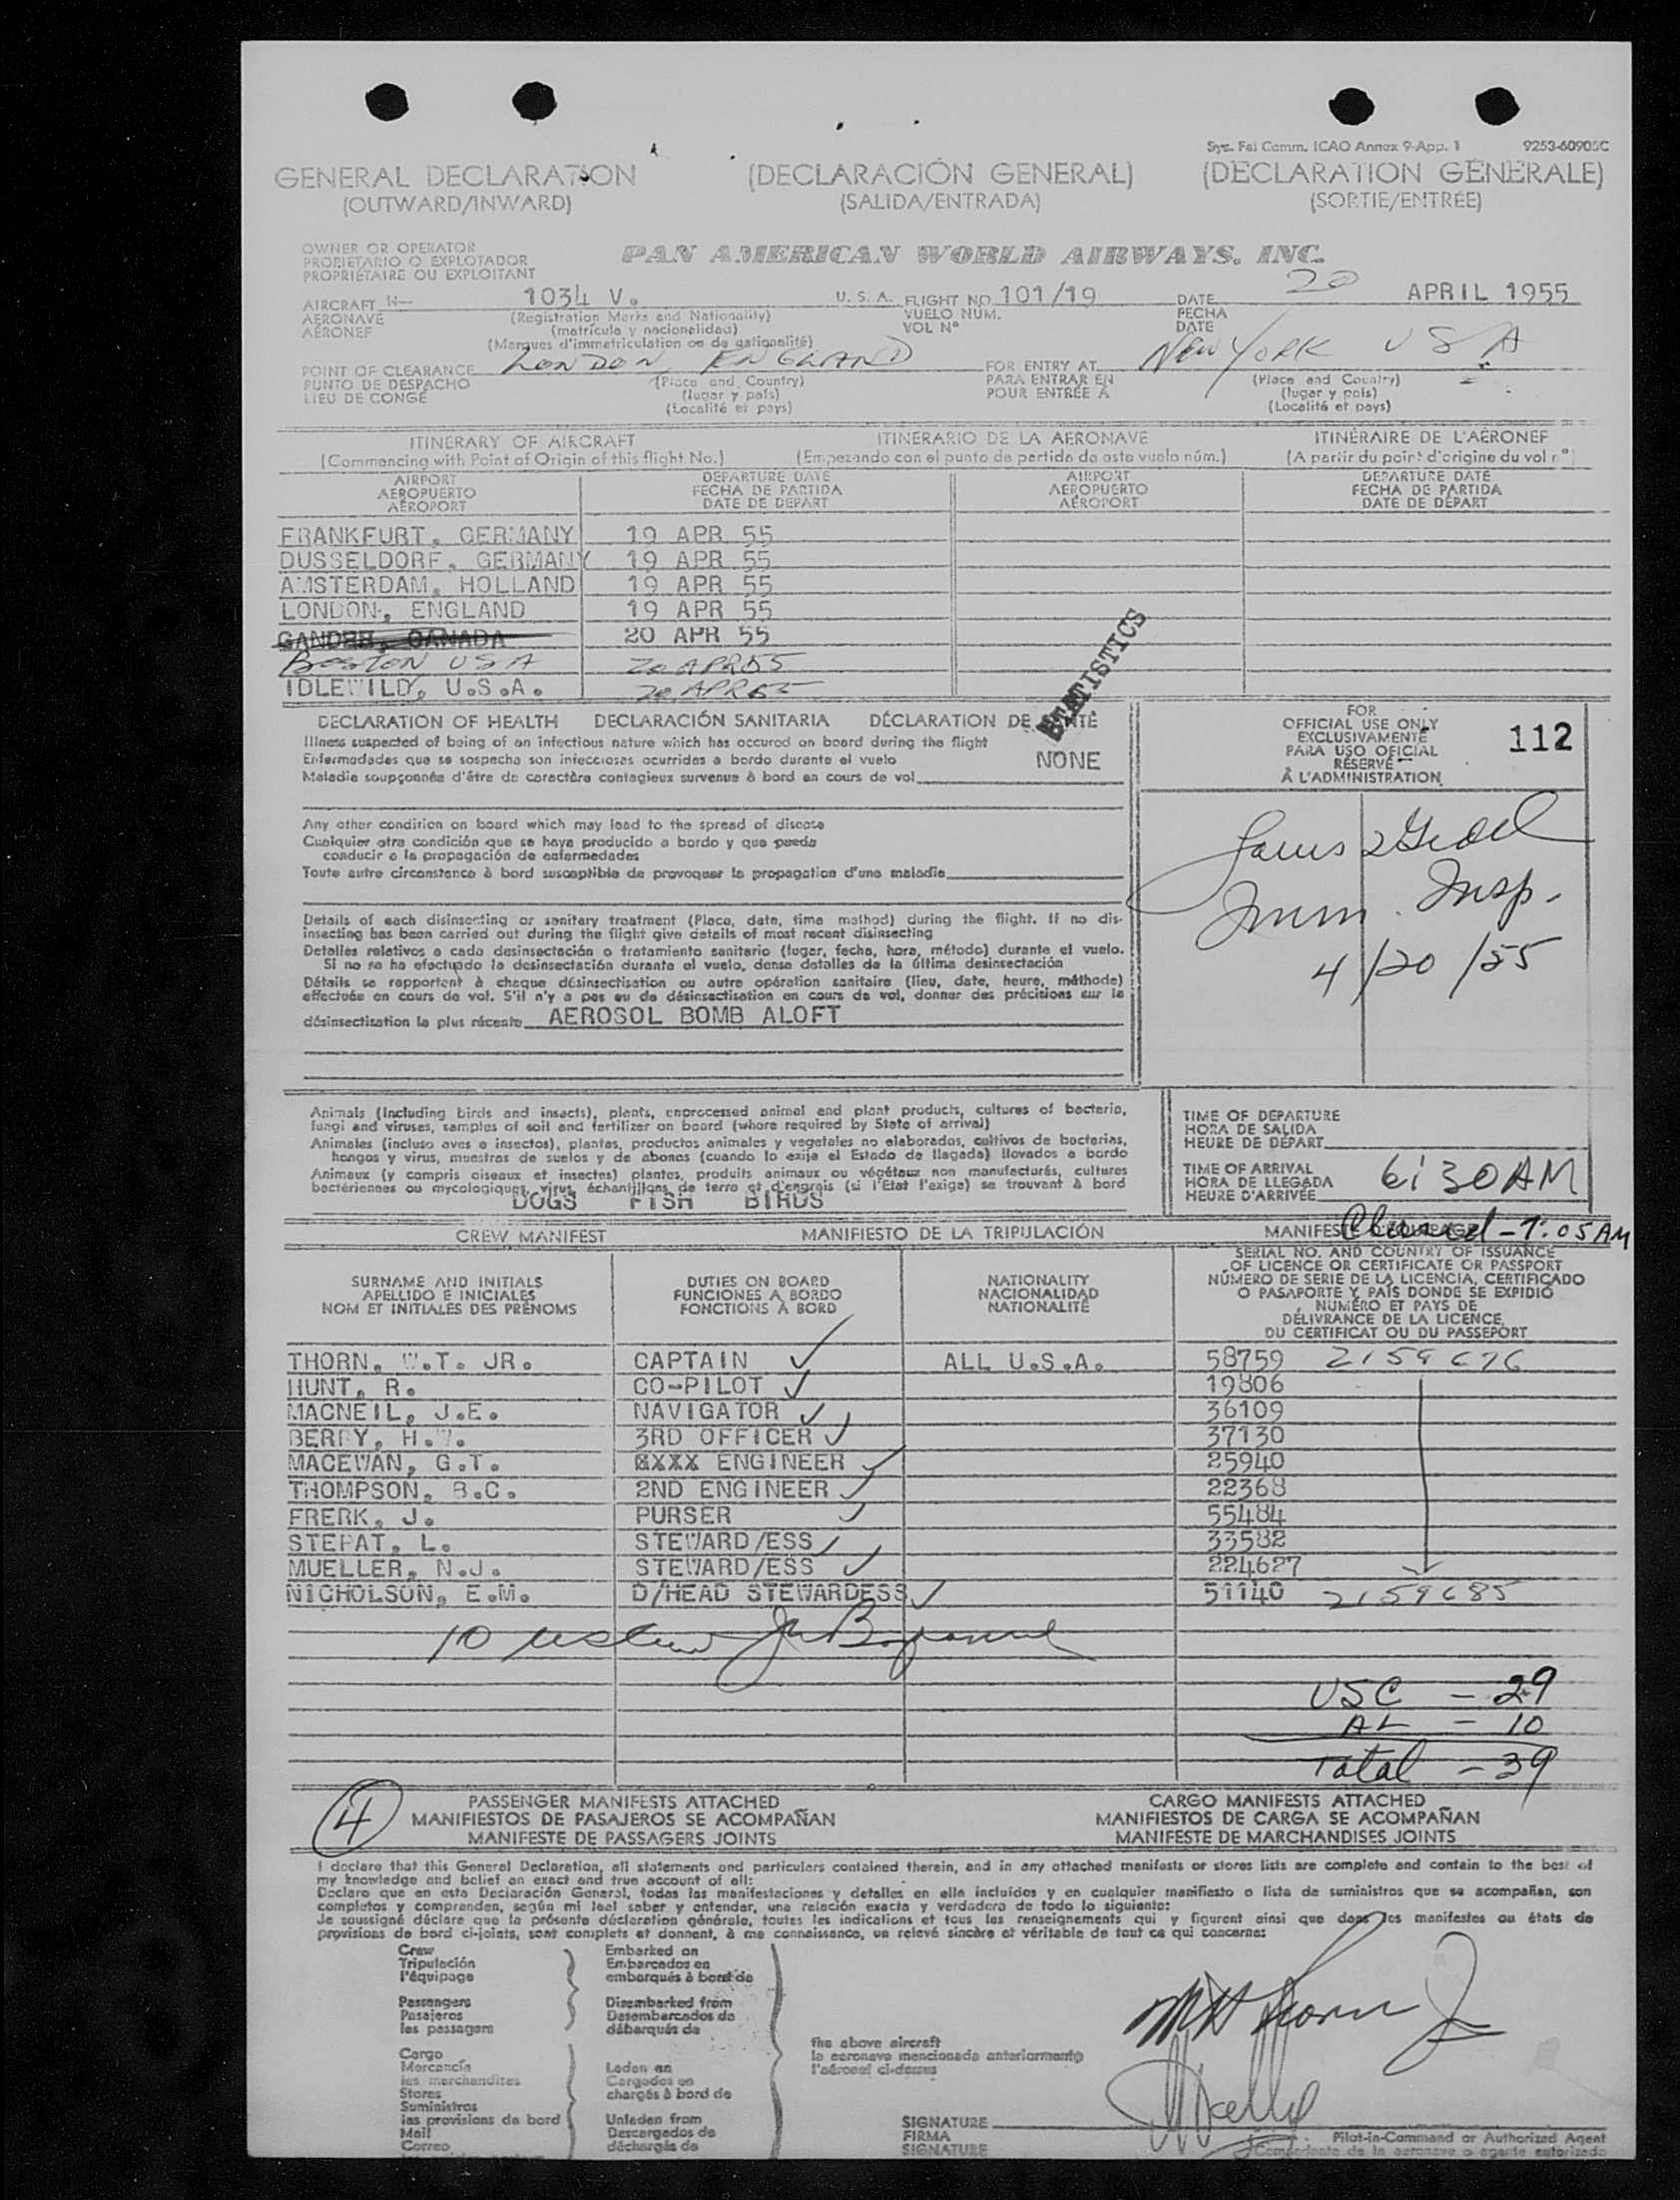 Sys. Fal Comm. ICAO Annex 9-App. 1 9253-60905C
GENERAL DECLARATION (DECLARACIÓN GENERAL) (DECLARATION GÉNÉRALE)
(OUTWARD/INWARD) (SALIDA/ENTRADA) (SORTIE/ENTRÉE)
OWNER OR OPERATOR
PROPIETARIO O EXPLOTADOR PAN AMERICAN WORLD AIRWAYS, INC.
PROPRIÉTAIRE OU EXPLOITANT
AIRCRAFT N— 1034 V. U. S. A. FLIGHT NO. 101/19 DATE 20 APRIL 1955
AERONAVE (Registration Marks and Nationality) VUELO NUM. FECHA
AÉRONEF (matrícula y nacionalidad) VOL Nº DATE
(Marques d'immatriculation ou de nationalité)
POINT OF CLEARANCE LONDON, ENGLAND FOR ENTRY AT NEW YORK USA
PUNTO DE DESPACHO (Place and Country) PARA ENTRAR EN (Place and Country)
LIEU DE CONGÉ (lugar y país) POUR ENTRÉE A (lugar y país)
(Localité et pays) (Localité et pays)
ITINERARY OF AIRCRAFT ITINERARIO DE LA AERONAVE ITINÉRAIRE DE L'AÉRONEF
(Commencing with Point of Origin of this flight No.) (Empezando con el punto de partida de este vuelo núm.) (A partir du point d'origine du vol nº)
AIRPORT DEPARTURE DATE AIRPORT DEPARTURE DATE
AEROPUERTO FECHA DE PARTIDA AEROPUERTO FECHA DE PARTIDA
AÉROPORT DATE DE DÉPART AÉROPORT DATE DE DÉPART
FRANKFURT, GERMANY 19 APR 55
DUSSELDORF, GERMANY 19 APR 55
AMSTERDAM, HOLLAND 19 APR 55
LONDON, ENGLAND 19 APR 55
GANDER, CANADA 20 APR 55
BOSTON USA 20 APR 55
IDLEWILD, U.S.A. 20 APR 55
STATISTICS
DECLARATION OF HEALTH DECLARACIÓN SANITARIA DÉCLARATION DE SANTÉ
Illness suspected of being of an infectious nature which has occured on board during the flight
Enfermedades que se sospecha son infecciosas ocurridas a bordo durante el vuelo NONE
Maladie soupçonnée d'être de caractère contagieux survenue à bord en cours de vol
FOR
OFFICIAL USE ONLY
EXCLUSIVAMENTE
PARA USO OFICIAL
RÉSERVÉ
À L'ADMINISTRATION
112
Any other condition on board which may lead to the spread of disease
Cualquier otra condición que se haya producido a bordo y que pueda
conducir a la propagación de enfermedades
Toute autre circonstance à bord susceptible de provoquer la propagation d'une maladie
Imm. Insp.
4/20/55
Details of each disinsecting or sanitary treatment (Place, date, time method) during the flight. If no dis-
insecting has been carried out during the flight give details of most recent disinsecting
Detalles relativos a cada desinsectación o tratamiento sanitario (lugar, fecha, hora, método) durante el vuelo.
Si no se ha efectuado la desinsectación durante el vuelo, dense detalles de la última desinsectación
Détails se rapportant à chaque désinsectisation ou autre opération sanitaire (lieu, date, heure, méthode)
effectuée en cours de vol. S'il n'y a pas eu de désinsectisation en cours de vol, donner des précisions sur la
désinsectisation la plus récente AEROSOL BOMB ALOFT
Animals (Including birds and insects), plants, unprocessed animal and plant products, cultures of bacteria,
fungi and viruses, samples of soil and fertilizer on board (where required by State of arrival)
Animales (incluso aves e insectos), plantas, productos animales y vegetales no elaborados, cultivos de bacterias,
hongos y virus, muestras de suelos y de abonos (cuando lo exija el Estado de llegada) llevados a bordo
Animaux (y compris oiseaux et insectes) plantes, produits animaux ou végétaux non manufacturés, cultures
bactériennes ou mycologiques, virus, échantillons de terre et d'engrais (si l'Etat l'exige) se trouvant à bord
DOGS FISH BIRDS
TIME OF DEPARTURE
HORA DE SALIDA
HEURE DE DÉPART
TIME OF ARRIVAL
HORA DE LLEGADA 6:30 AM
HEURE D'ARRIVÉE
Cleared - 7:05 AM
CREW MANIFEST MANIFIESTO DE LA TRIPULACIÓN MANIFESTE D'ÉQUIPAGE
SURNAME AND INITIALS DUTIES ON BOARD NATIONALITY
APELLIDO E INICIALES FUNCIONES A BORDO NACIONALIDAD
NOM ET INITIALES DES PRÉNOMS FONCTIONS À BORD NATIONALITÉ
SERIAL NO. AND COUNTRY OF ISSUANCE
OF LICENCE OR CERTIFICATE OR PASSPORT
NÚMERO DE SERIE DE LA LICENCIA, CERTIFICADO
O PASAPORTE Y PAÍS DONDE SE EXPIDIÓ
NUMÉRO ET PAYS DE
DÉLIVRANCE DE LA LICENCE,
DU CERTIFICAT OU DU PASSEPORT
THORN, W.T. JR. CAPTAIN ALL U.S.A. 58759 2159676
HUNT, R. CO-PILOT 19806
MACNEIL, J.E. NAVIGATOR 36109
BERRY, H.W. 3RD OFFICER 37130
MACEWAN, G.T. ENGINEER 25940
THOMPSON, B.C. 2ND ENGINEER 22368
FRERK, J. PURSER 55484
STEPAT, L. STEWARD/ESS 33582
MUELLER, N.J. STEWARD/ESS 224627
NICHOLSON, E.M. D/HEAD STEWARDESS 51140 2159685
10
USC - 29
AL - 10
Total - 39
4
PASSENGER MANIFESTS ATTACHED CARGO MANIFESTS ATTACHED
MANIFIESTOS DE PASAJEROS SE ACOMPAÑAN MANIFIESTOS DE CARGA SE ACOMPAÑAN
MANIFESTE DE PASSAGERS JOINTS MANIFESTE DE MARCHANDISES JOINTS
I declare that this General Declaration, all statements and particulars contained therein, and in any attached manifests or stores lists are complete and contain to the best of
my knowledge and belief an exact and true account of all:
Declaro que en esta Declaración General, todas las manifestaciones y detalles en ella incluidos y en cualquier manifiesto o lista de suministros que se acompañan, son
completos y comprenden, según mi leal saber y entender, una relación exacta y verdadera de todo lo siguiente:
Je soussigné déclare que la présente déclaration générale, toutes les indications et tous les renseignements qui y figurent ainsi que dans les manifestes ou états de
provisions de bord ci-joints, sont complets et donnent, à me connaissance, un relevé sincère et véritable de tout ce qui concerne:
Crew Embarked on
Tripulación Embarcados en
l'équipage embarqués à bord de
Passengers Disembarked from
Pasajeros Desembarcados de
les passagers débarqués de
the above aircraft
la aeronave mencionada anteriormente
l'aéronef ci-dessus
Cargo
Mercancía Laden on
les marchandises Cargados en
Stores chargés à bord de
Suministros
les provisions de bord Unladen from
Mail Descargados de
Correo déchargés de
SIGNATURE
FIRMA Pilot-in-Command or Authorized Agent
SIGNATURE Comandante de la aeronave o agente autorizado